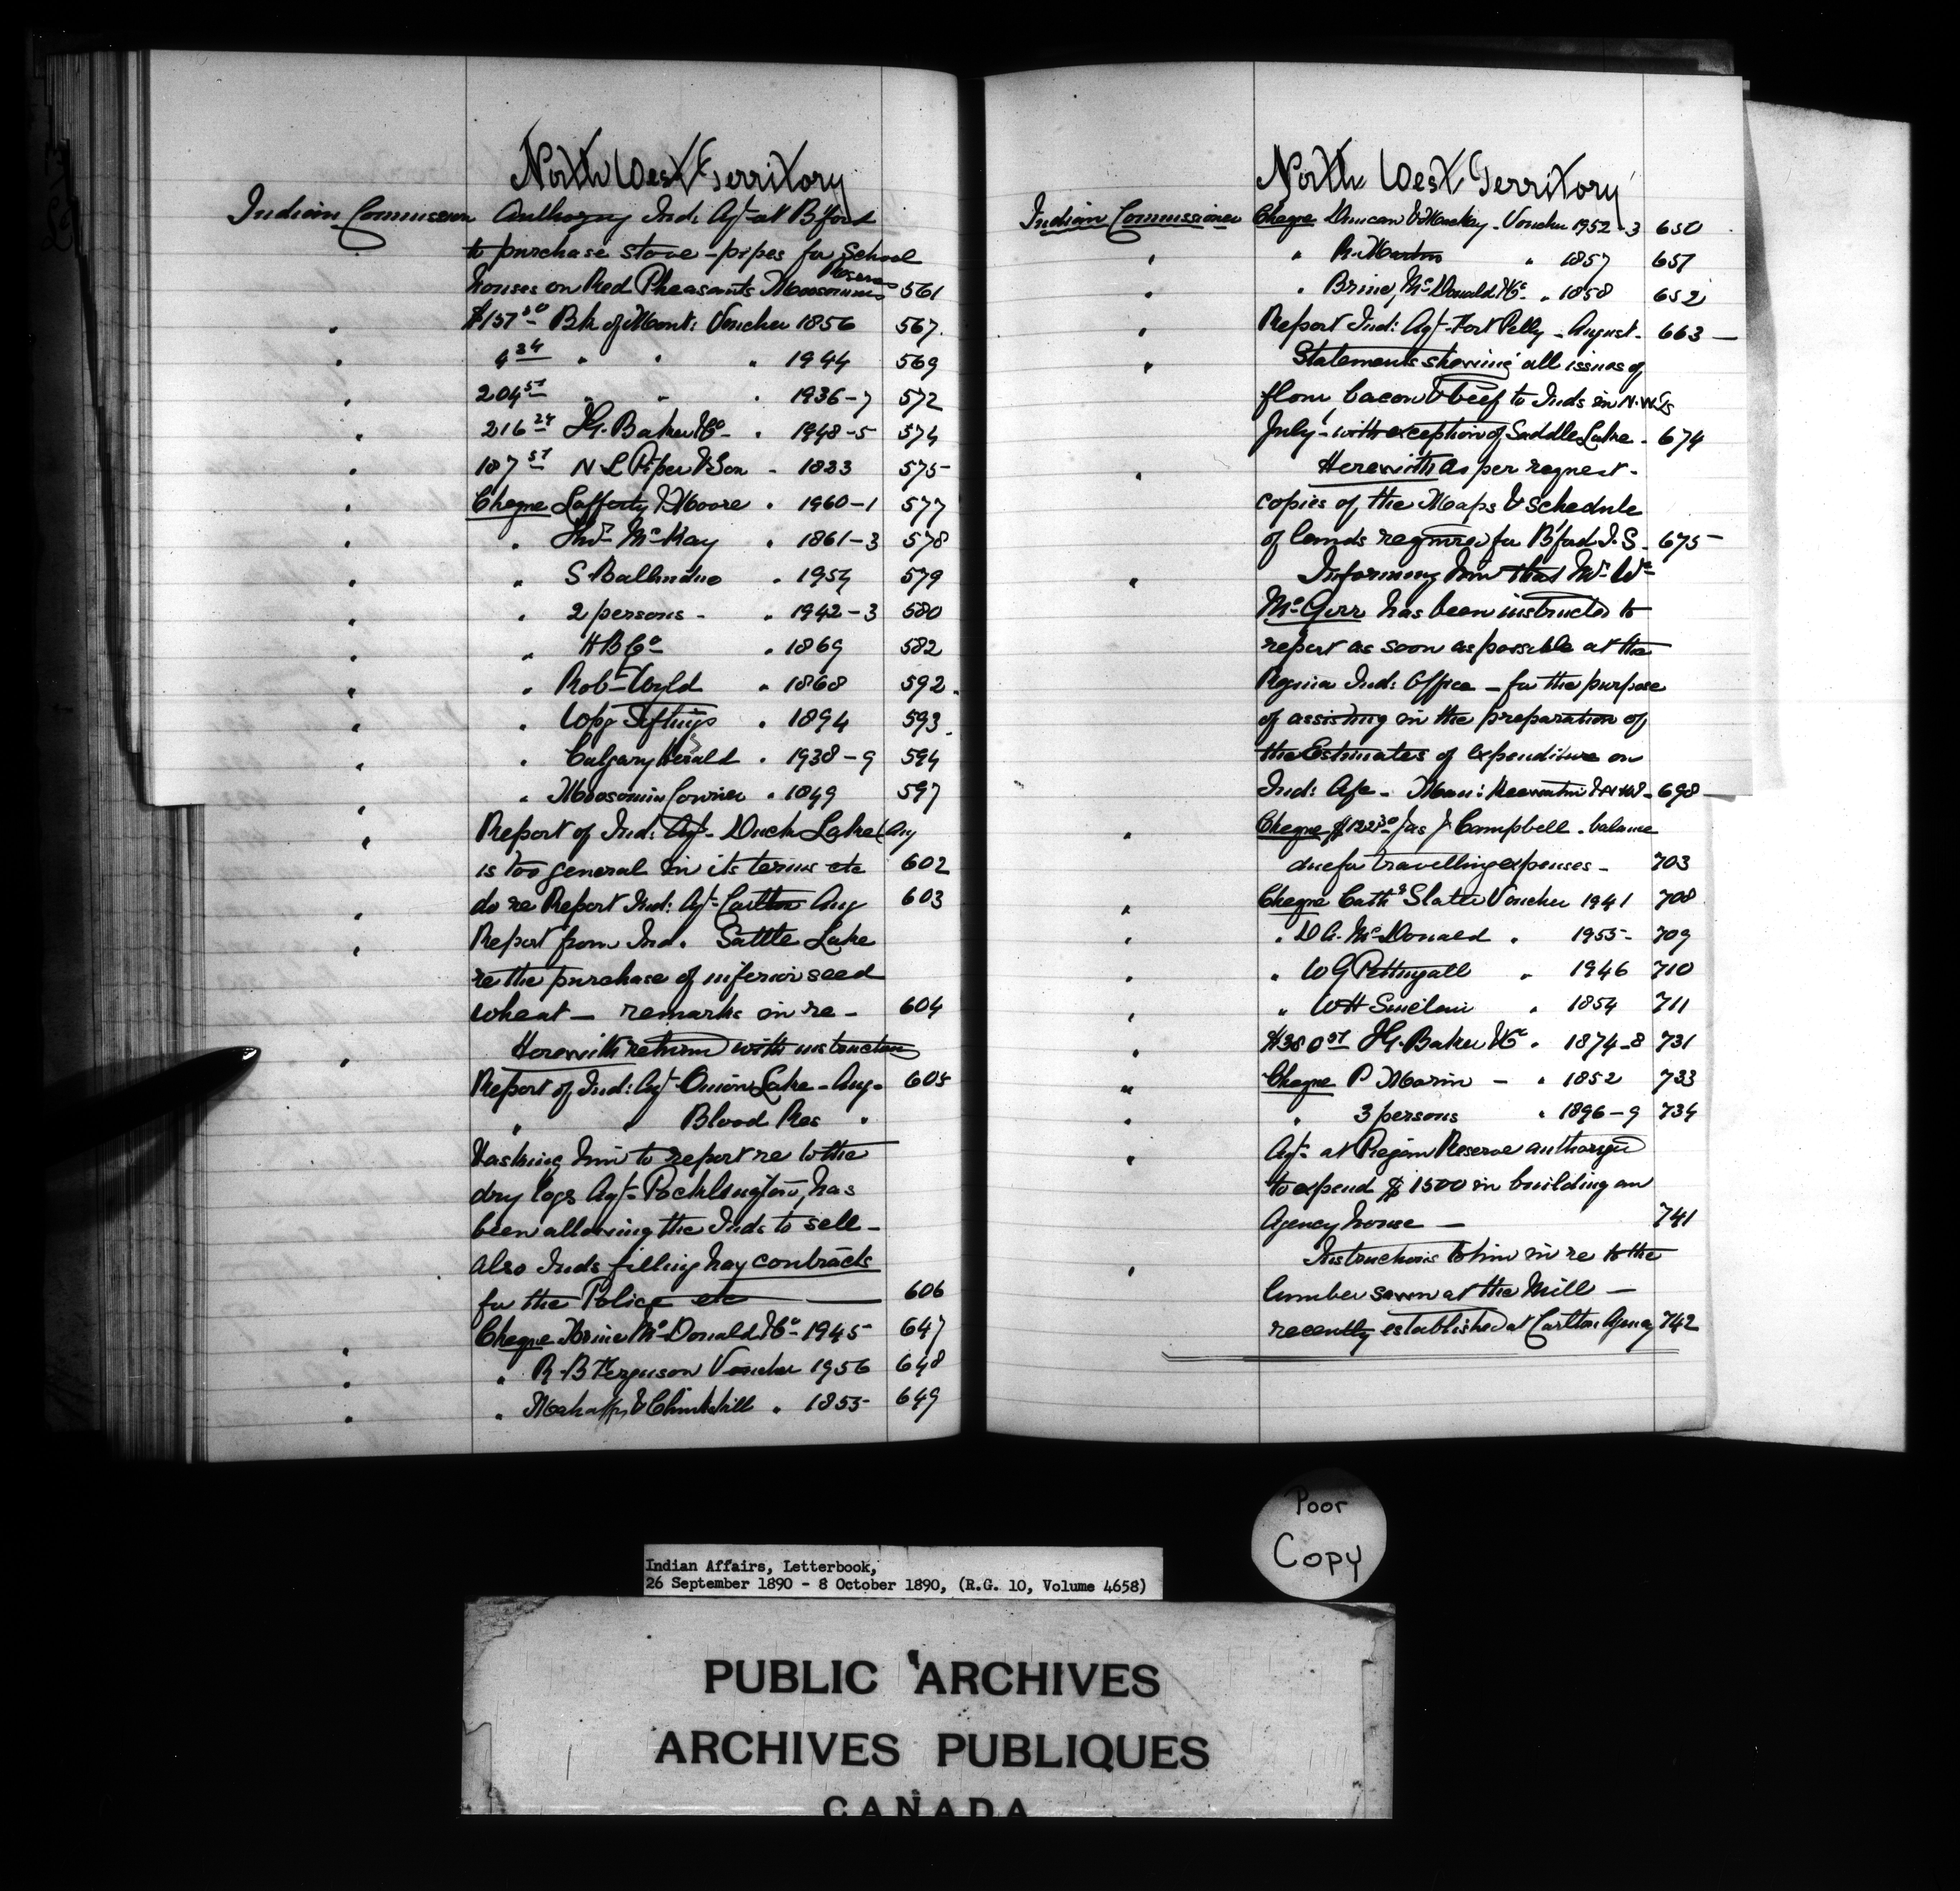 North West Territory
Indian Commissioner Authorizing Ind: Agt at Bford
to purchase stove-pipes for School
Reserves
houses on Red Pheasants Moosomins 561
" $157.50 Bk of Mont: Voucher 1856 567
" 4 34 " " " 1944 569
" 204 51 " " " 1936-7 572
" 216 24 I.G. Baker & Co - " 1948-5 574
" 187 51 N L Piper & Son - 1823 575
" Cheque Lafferty & Moore " 1960-1 577
" " McKay " 1861-3 578
" " S Ballendine " 1954 579
" " 2 persons - " 1942-3 580
" " H B Co " 1869 582
" " Robt Wyld " 1868 592
" " Wpg Siftings " 1894 593
" " Calgary Herald " 1938-9 594
" " Moosomin Courier " 1849 597
" Report of Ind: Agt - Duck Lake (Aug
is too general in its terms etc 602
" do re Report Ind: Agt Carlton Aug 603
" Report from Ind. Sattle Lake
re the purchase of inferior seed
wheat - remarks in re - 604
" Herewith return with instructions
Report of Ind: Agt Onion Lake - Aug - 605
" " Blood Res "
& asking him to report re to the
dry logs Agt Pocklington, has
been allowing the Inds to sell -
also Inds filling hay contracts
for the Police etc 606
" Cheque Brine McDonald & Co - 1945 647
" " R. B Ferguson Voucher 1956 648
" " Mahaffy & Clinkskill " 1855 649
North West Territory
Indian Commissioner Cheque Duncan & Mackay - Voucher 1952-3 650
" " R. Martin " 1857 651
" " Brine, McDonald & Co " 1858 652
" Report Ind: Agt - Fort Pelly - August - 663
" Statements showing all issues of
flour, bacon & beef to Inds in N.W.Ts
July - with exception of Saddle Lake - 674
" Herewith as per request -
copies of the Maps & Schedule
of lands required for B'ford I.S - 675
" Informing him that Mr Wm
McGirr has been instructed to
report as soon as possible at the
Regina Ind: Office - for the purpose
of assisting in the preparation of
the Estimates of expenditure on
Ind: Afs - Man: Keewatin & N W - 698
" Cheque $122 30 Jas J Campbell - balance
due for travelling expenses - 703
" Cheque Cath Slater Voucher 1941 708
" " D A. McDonald " 1955 - 709
" " W G Pettingall " 1946 710
" " W H Sinclair " 1854 711
" $380 51 I.G. Baker & Co " 1874-8 731
" Cheque P Marin - " 1852 733
" " 3 persons " 1896-9 734
" Agt at Piegan Reserve authorized
to expend $1500 in building an
Agency house - 741
" Instructions to him in re to the
lumber sawn at the Mill -
recently established at Carlton Agency 742
Poor
Copy
Indian Affairs, Letterbook,
26 September 1890 - 8 October 1890, (R.G. 10, Volume 4658)
PUBLIC ARCHIVES
ARCHIVES PUBLIQUES
CANADA